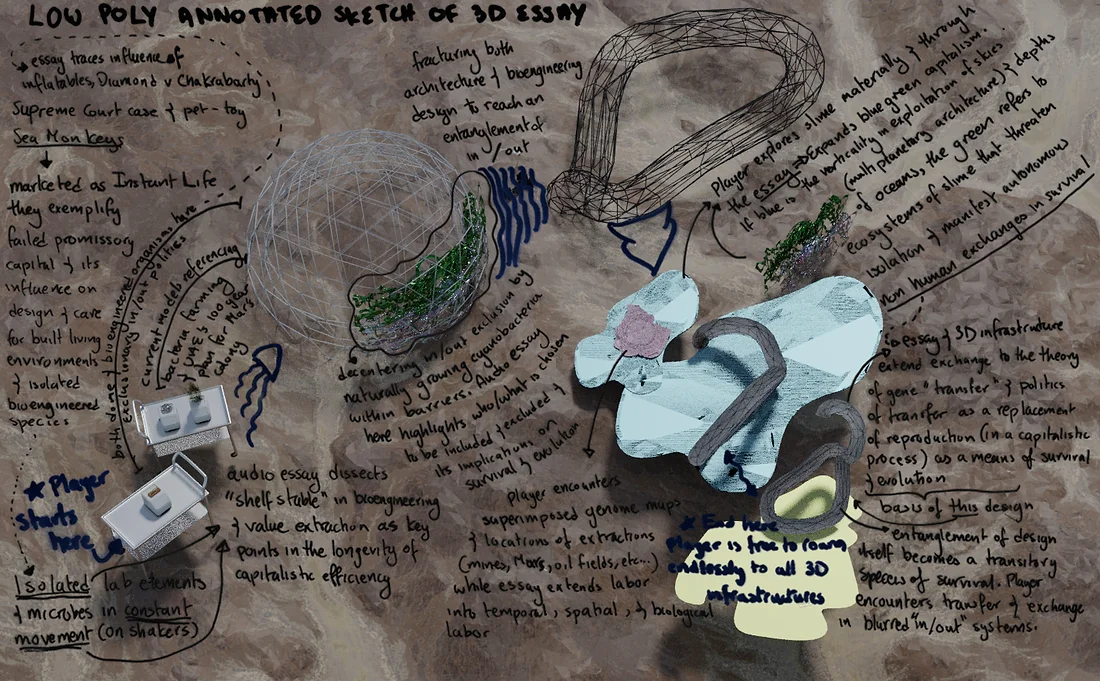 LOW POLY ANNOTATED SKETCH OF 3D ESSAY
essay traces influence of
inflatables, Diamond v Chakrabarty
Supreme Court case & pet-toy
Sea Monkeys
marketed as Instant Life
they exemplify
failed promissory
capital & its
influence on
design & care
for built living
environments
& isolated
bioengineered
species
both dome & bioengineered organisms here
exclusionary in/out polities
current models referencing
bacteria farming
& UAE's 100 year
plan for Mars
colony
★ Player
starts
here
Isolated lab elements
& microbes in constant
movement (on shakers)
audio essay dissects
"shelf stable" in bioengineering
& value extraction as key
points in the longevity of
capitalistic efficiency
fracturing both
architecture & bioengineering
design to reach an
entanglement of
in/out
decentering in/out exclusion by
naturally growing cyanobacteria
within barriers. Audio essay
here highlights who/what is chosen
to be included & excluded &
its implications on
survival & evolution
Player explores slime materially & through
the essay → Expands blue green capitalism.
If blue is the verticality in exploitation of skies
(multi planetary architecture) & depths
of oceans, the green refers to
ecosystems of slime that threaten
isolation & manifest autonomous
non human exchanges in survival!
Player encounters
superimposed genome maps
& locations of extractions
(mines, Mars, oil fields, etc...)
while essay extends labor
into temporal, spatial, & biological
labor
★ End here
Player is free to roam
endlessly to all 3D
infrastructures
essay & 3D infrastructure
extend exchange to the theory
of gene "transfer" & politics
of transfer as a replacement
of reproduction (in a capitalistic
process) as a means of survival
& evolution
basis of this design
entanglement of design
itself becomes a transitory
species of survival. Player
encounters transfer & exchange
in blurred "in/out" systems.